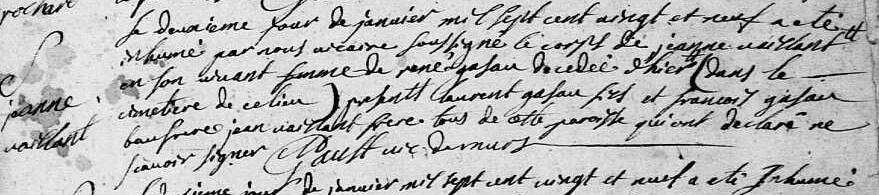 Le deuxieme jour de janvier mil sept cent vingt et neuf a eté
inhumé par nous vicaire soussigné le corps de jeanne vaillant
en son vivant femme de rené gasau decedeé d'hier (dans le
jeanne cimetiere de ce lieu) presents laurent gasau fils et francois gasau
vaillant baufrere jean vaillant frere tous de cette paroisse qui ont declaré ne
scavoir signer vic
jour de janvier mil sept cent vingt et neuf a eté Inhumé